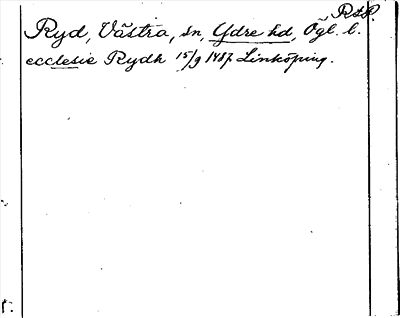 RAP.
Ryd, Västra, sn, Ydre hd, Ögl. l.
ecclesie Rydh 15/9 1487 Linköping.